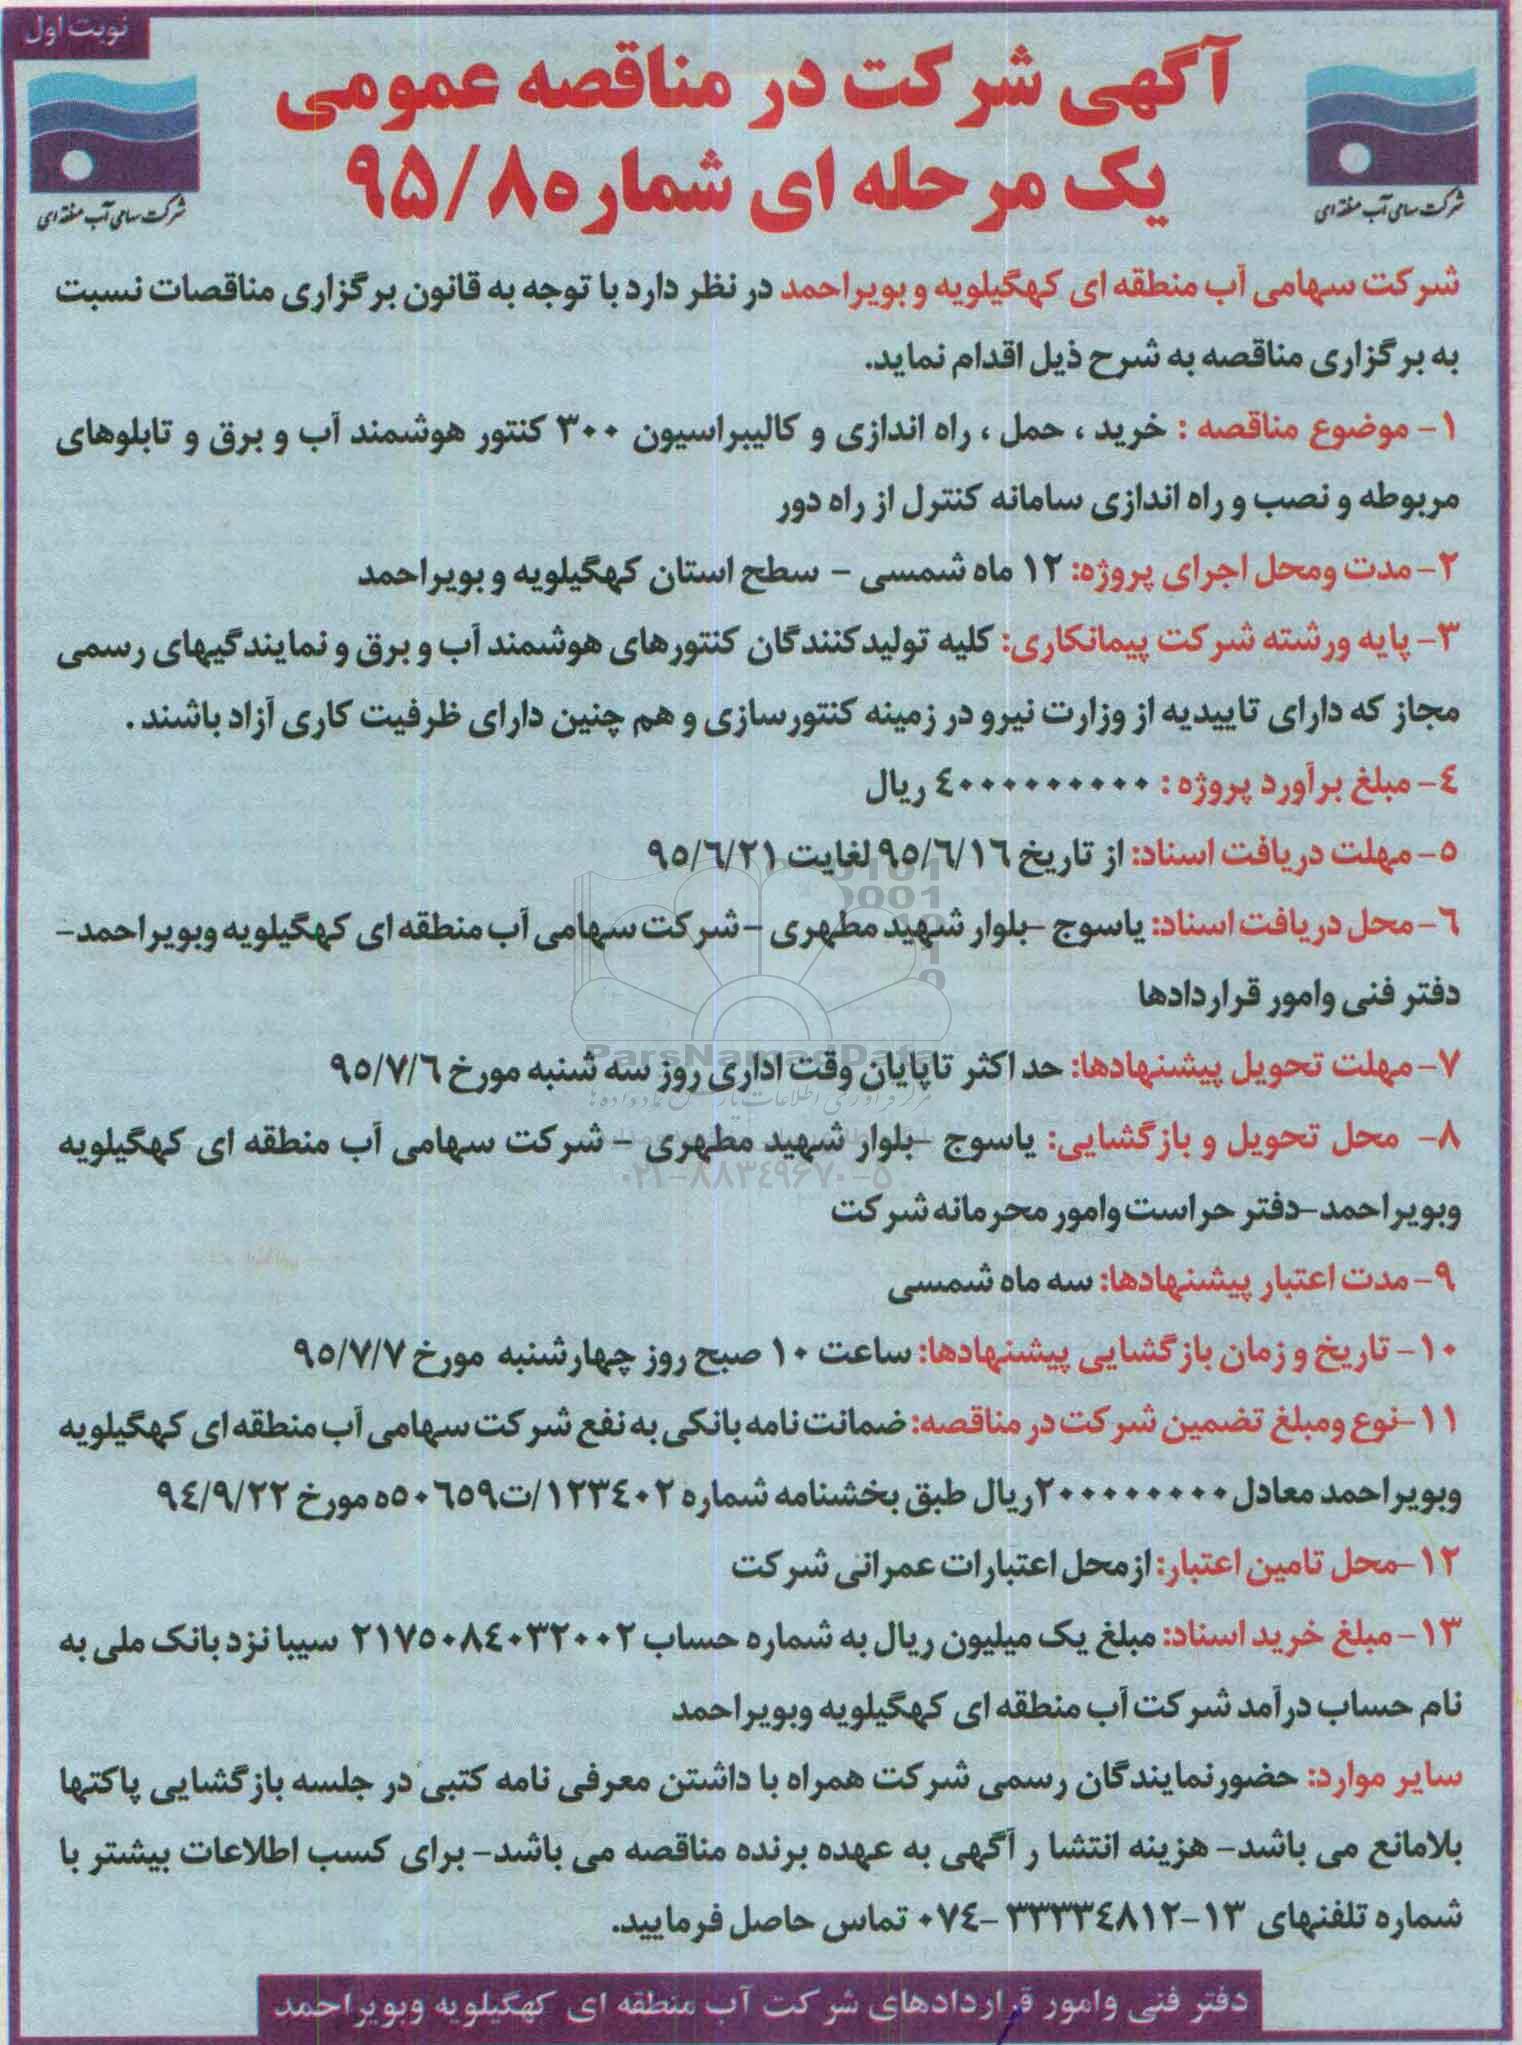 نوبت اول
آگهی شرکت در مناقصه عمومی
یک مرحله ای شماره ۹۵/۸
شرکت سهامی آب منطقه ای
شرکت سهامی آب منطقه ای
شرکت سهامی آب منطقه ای کهگیلویه و بویراحمد در نظر دارد با توجه به قانون برگزاری مناقصات نسبت
به برگزاری مناقصه به شرح ذیل اقدام نماید.
۱- موضوع مناقصه : خرید ، حمل ، راه اندازی و کالیبراسیون ۳۰۰ کنتور هوشمند آب و برق و تابلوهای
مربوطه و نصب و راه اندازی سامانه کنترل از راه دور
۲- مدت ومحل اجرای پروژه: ۱۲ ماه شمسی - سطح استان کهگیلویه و بویراحمد
۳- پایه ورشته شرکت پیمانکاری: کلیه تولیدکنندگان کنتورهای هوشمند آب و برق و نمایندگیهای رسمی
مجاز که دارای تاییدیه از وزارت نیرو در زمینه کنتورسازی و هم چنین دارای ظرفیت کاری آزاد باشند .
۴- مبلغ برآورد پروژه : ۴۰۰۰۰۰۰۰۰۰ ریال
۵- مهلت دریافت اسناد: از تاریخ ۹۵/۶/۱۶ لغایت ۹۵/۶/۲۱
۶- محل دریافت اسناد: یاسوج -بلوار شهید مطهری -شرکت سهامی آب منطقه ای کهگیلویه وبویراحمد-
دفتر فنی وامور قراردادها
ParsNamadData
۷- مهلت تحویل پیشنهادها: حداکثر تاپایان وقت اداری روز سه شنبه مورخ ۹۵/۷/۶
۸- محل تحویل و بازگشایی: یاسوج -بلوار شهید مطهری - شرکت سهامی آب منطقه ای کهگیلویه
۰۲۱-۸۸۳۴۹۶۷۰-۵
وبویراحمد-دفتر حراست وامور محرمانه شرکت
۹- مدت اعتبار پیشنهادها: سه ماه شمسی
۱۰- تاریخ و زمان بازگشایی پیشنهادها: ساعت ۱۰ صبح روز چهارشنبه مورخ ۹۵/۷/۷
۱۱-نوع ومبلغ تضمین شرکت در مناقصه: ضمانت نامه بانکی به نفع شرکت سهامی آب منطقه ای کهگیلویه
وبویراحمد معادل ۲۰۰۰۰۰۰۰۰ریال طبق بخشنامه شماره ۱۲۳۴۰۲/ت۵۰۶۵۹ه مورخ ۹۴/۹/۲۲
۱۲-محل تامین اعتبار: ازمحل اعتبارات عمرانی شرکت
۱۳- مبلغ خرید اسناد: مبلغ یک میلیون ریال به شماره حساب ۲۱۷۵۰۸۴۰۳۲۰۰۲ سیبا نزد بانک ملی به
نام حساب درآمد شرکت آب منطقه ای کهگیلویه وبویراحمد
سایر موارد: حضورنمایندگان رسمی شرکت همراه با داشتن معرفی نامه کتبی در جلسه بازگشایی پاکتها
بلامانع می باشد- هزینه انتشا ر آگهی به عهده برنده مناقصه می باشد- برای کسب اطلاعات بیشتر با
شماره تلفنهای ۱۳-۳۳۳۳۴۸۱۲ -۰۷۴ تماس حاصل فرمایید.
دفتر فنی وامور قراردادهای شرکت آب منطقه ای کهگیلویه وبویراحمد